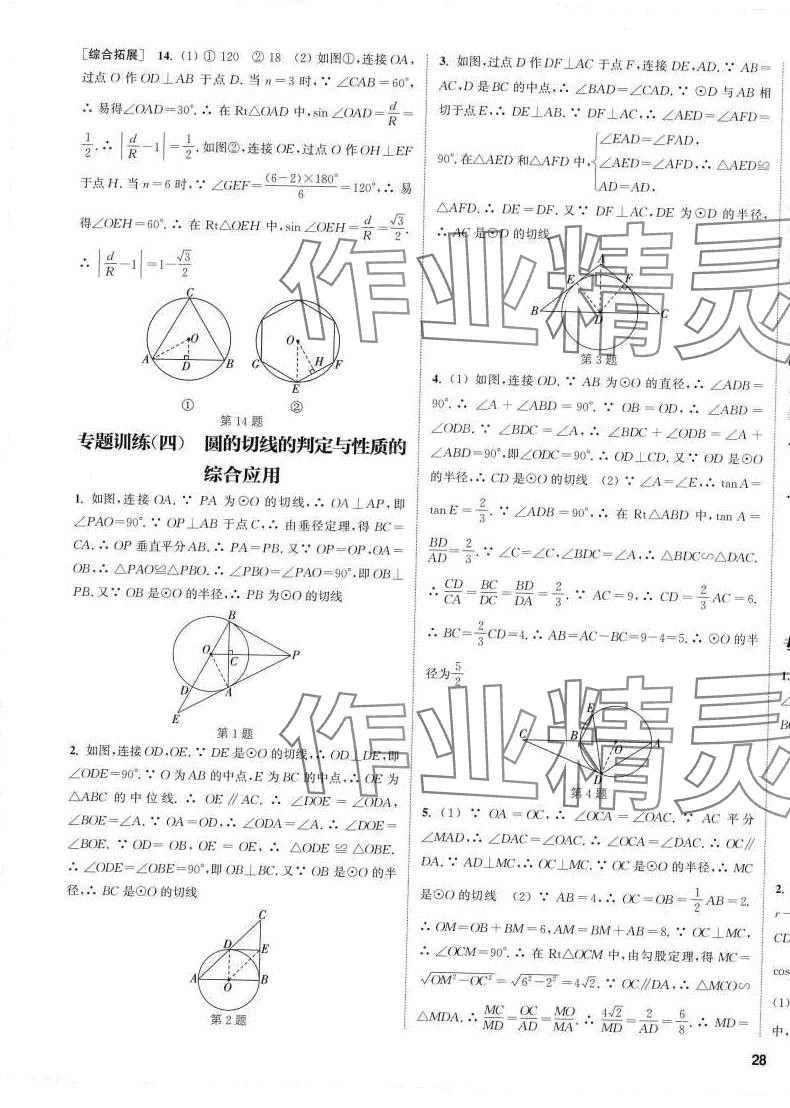 [综合拓展] 14. (1) ① 120 ② 18 (2) 如图①,连接 OA,
过点 O 作 OD⊥AB 于点 D. 当 n=3 时,∵ ∠CAB=60°,
∴ 易得∠OAD=30°. ∴ 在 Rt△OAD 中,sin∠OAD=d/R=
1/2. ∴ |d/R-1|=1/2. 如图②,连接 OE,过点 O 作 OH⊥EF
于点 H. 当 n=6 时,∵ ∠GEF=(6-2)×180°/6=120°,∴ 易
得∠OEH=60°. ∴ 在 Rt△OEH 中,sin∠OEH=d/R=√3/2.
∴ |d/R-1|=1-√3/2
C
O
A D B
①
O
G H F
E
②
第14题
专题训练(四) 圆的切线的判定与性质的
综合应用
1. 如图,连接 OA. ∵ PA 为⊙O 的切线,∴ OA⊥AP,即
∠PAO=90°. ∵ OP⊥AB 于点 C,∴ 由垂径定理,得 BC=
CA. ∴ OP 垂直平分 AB. ∴ PA=PB. 又∵ OP=OP,OA=
OB,∴ △PAO≌△PBO. ∴ ∠PBO=∠PAO=90°,即 OB⊥
PB. 又∵ OB 是⊙O 的半径,∴ PB 为⊙O 的切线
B
O C P
D A
E
第1题
2. 如图,连接 OD,OE. ∵ DE 是⊙O 的切线,∴ OD⊥DE,即
∠ODE=90°. ∵ O 为 AB 的中点,E 为 BC 的中点,∴ OE 为
△ABC 的中位线. ∴ OE∥AC. ∴ ∠DOE=∠ODA,
∠BOE=∠A. ∵ OA=OD,∴ ∠ODA=∠A. ∴ ∠DOE=
∠BOE. ∵ OD=OB, OE=OE, ∴ △ODE≌△OBE.
∴ ∠ODE=∠OBE=90°,即 OB⊥BC. 又∵ OB 是⊙O 的半
径,∴ BC 是⊙O 的切线
C
D E
A O B
第2题
3. 如图,过点 D 作 DF⊥AC 于点 F,连接 DE,AD. ∵ AB=
AC,D 是 BC 的中点,∴ ∠BAD=∠CAD. ∵ ⊙D 与 AB 相
切于点 E,∴ DE⊥AB. ∵ DF⊥AC,∴ ∠AED=∠AFD=
90°. 在△AED 和△AFD 中,{∠EAD=∠FAD, ∠AED=∠AFD, AD=AD, ∴ △AED≌
△AFD. ∴ DE=DF. 又∵ DF⊥AC,DE 为⊙D 的半径,
∴ AC 是⊙D 的切线
A
E F
B D C
第3题
4. (1) 如图,连接 OD. ∵ AB 为⊙O 的直径,∴ ∠ADB=
90°. ∴ ∠A+∠ABD=90°. ∵ OB=OD,∴ ∠ABD=
∠ODB. ∵ ∠BDC=∠A,∴ ∠BDC+∠ODB=∠A+
∠ABD=90°,即∠ODC=90°. ∴ OD⊥CD. 又∵ OD 是⊙O
的半径,∴ CD 是⊙O 的切线 (2) ∵ ∠A=∠E,∴ tan A=
tan E=2/3. ∵ ∠ADB=90°,∴ 在 Rt△ABD 中,tan A=
BD/AD=2/3. ∵ ∠C=∠C,∠BDC=∠A,∴ △BDC∽△DAC.
∴ CD/CA=BC/DC=BD/DA=2/3. ∵ AC=9,∴ CD=2/3AC=6.
∴ BC=2/3CD=4. ∴ AB=AC-BC=9-4=5. ∴ ⊙O 的半
径为5/2
E
C B O A
D
第4题
5. (1) ∵ OA=OC,∴ ∠OCA=∠OAC. ∵ AC 平分
∠MAD,∴ ∠DAC=∠OAC. ∴ ∠OCA=∠DAC. ∴ OC∥
DA. ∵ AD⊥MC,∴ OC⊥MC. ∵ OC 是⊙O 的半径,∴ MC
是⊙O 的切线 (2) ∵ AB=4,∴ OC=OB=1/2AB=2.
∴ OM=OB+BM=6,AM=BM+AB=8. ∵ OC⊥MC,
∴ ∠OCM=90°. ∴ 在 Rt△OCM 中,由勾股定理,得 MC=
√(OM²-OC²)=√(6²-2²)=4√2. ∵ OC∥DA,∴ △MCO∽
△MDA. ∴ MC/MD=OC/AD=MO/MA. ∴ 4√2/MD=2/AD=6/8. ∴ MD=
1.
2.
CD
cos
(1)
中,
28
作业精灵
作业精灵